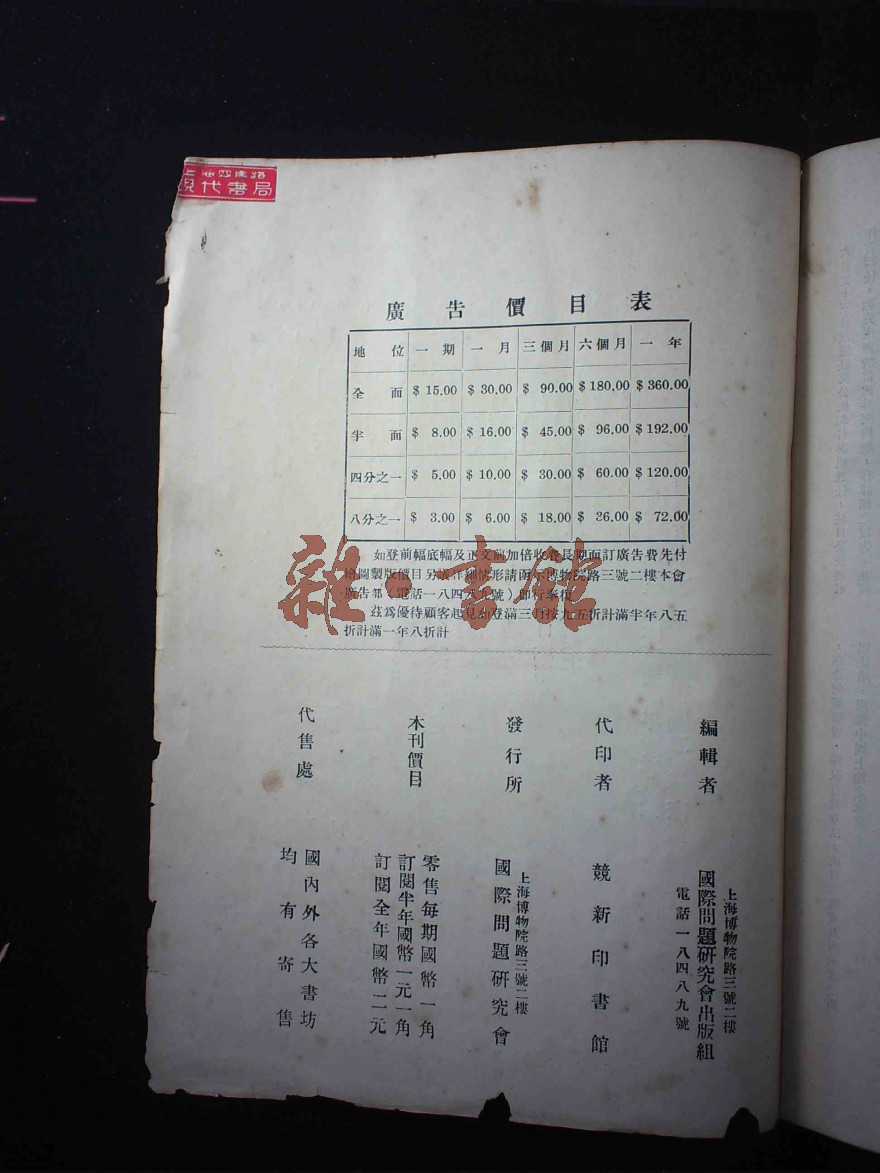 上海四馬路
現代書局
廣告價目表
地位 一期 一月 三個月 六個月 一年
全面 $ 15.00 $ 30.00 $ 90.00 $ 180.00 $ 360.00
半面 $ 8.00 $ 16.00 $ 45.00 $ 96.00 $ 192.00
四分之一 $ 5.00 $ 10.00 $ 30.00 $ 60.00 $ 120.00
八分之一 $ 3.00 $ 6.00 $ 18.00 $ 36.00 $ 72.00
如登前幅底幅及正文前加倍收費長期面訂廣告費先付
製版價目另議詳細情形請函本博物院路三號二樓本會
廣告部(電話一八四八九號)即行奉復
茲爲優待顧客起見如登滿三月按九五折計滿半年八五
折計滿一年八折計
雜·書館
編輯者
上海博物院路三號二樓
國際問題研究會出版組
電話一八四八九號
代印者 競新印書館
發行所
上海博物院路三號二樓
國際問題研究會
本刊價目
零售每期國幣一角
訂閱半年國幣一元一角
訂閱全年國幣二元
代售處
國內外各大書坊
均有寄售